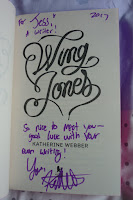 For Jess, 2017
a writer!
Wing
Jones
So nice to meet you —
good luck with your
KATHERINE WEBBER
own writing!